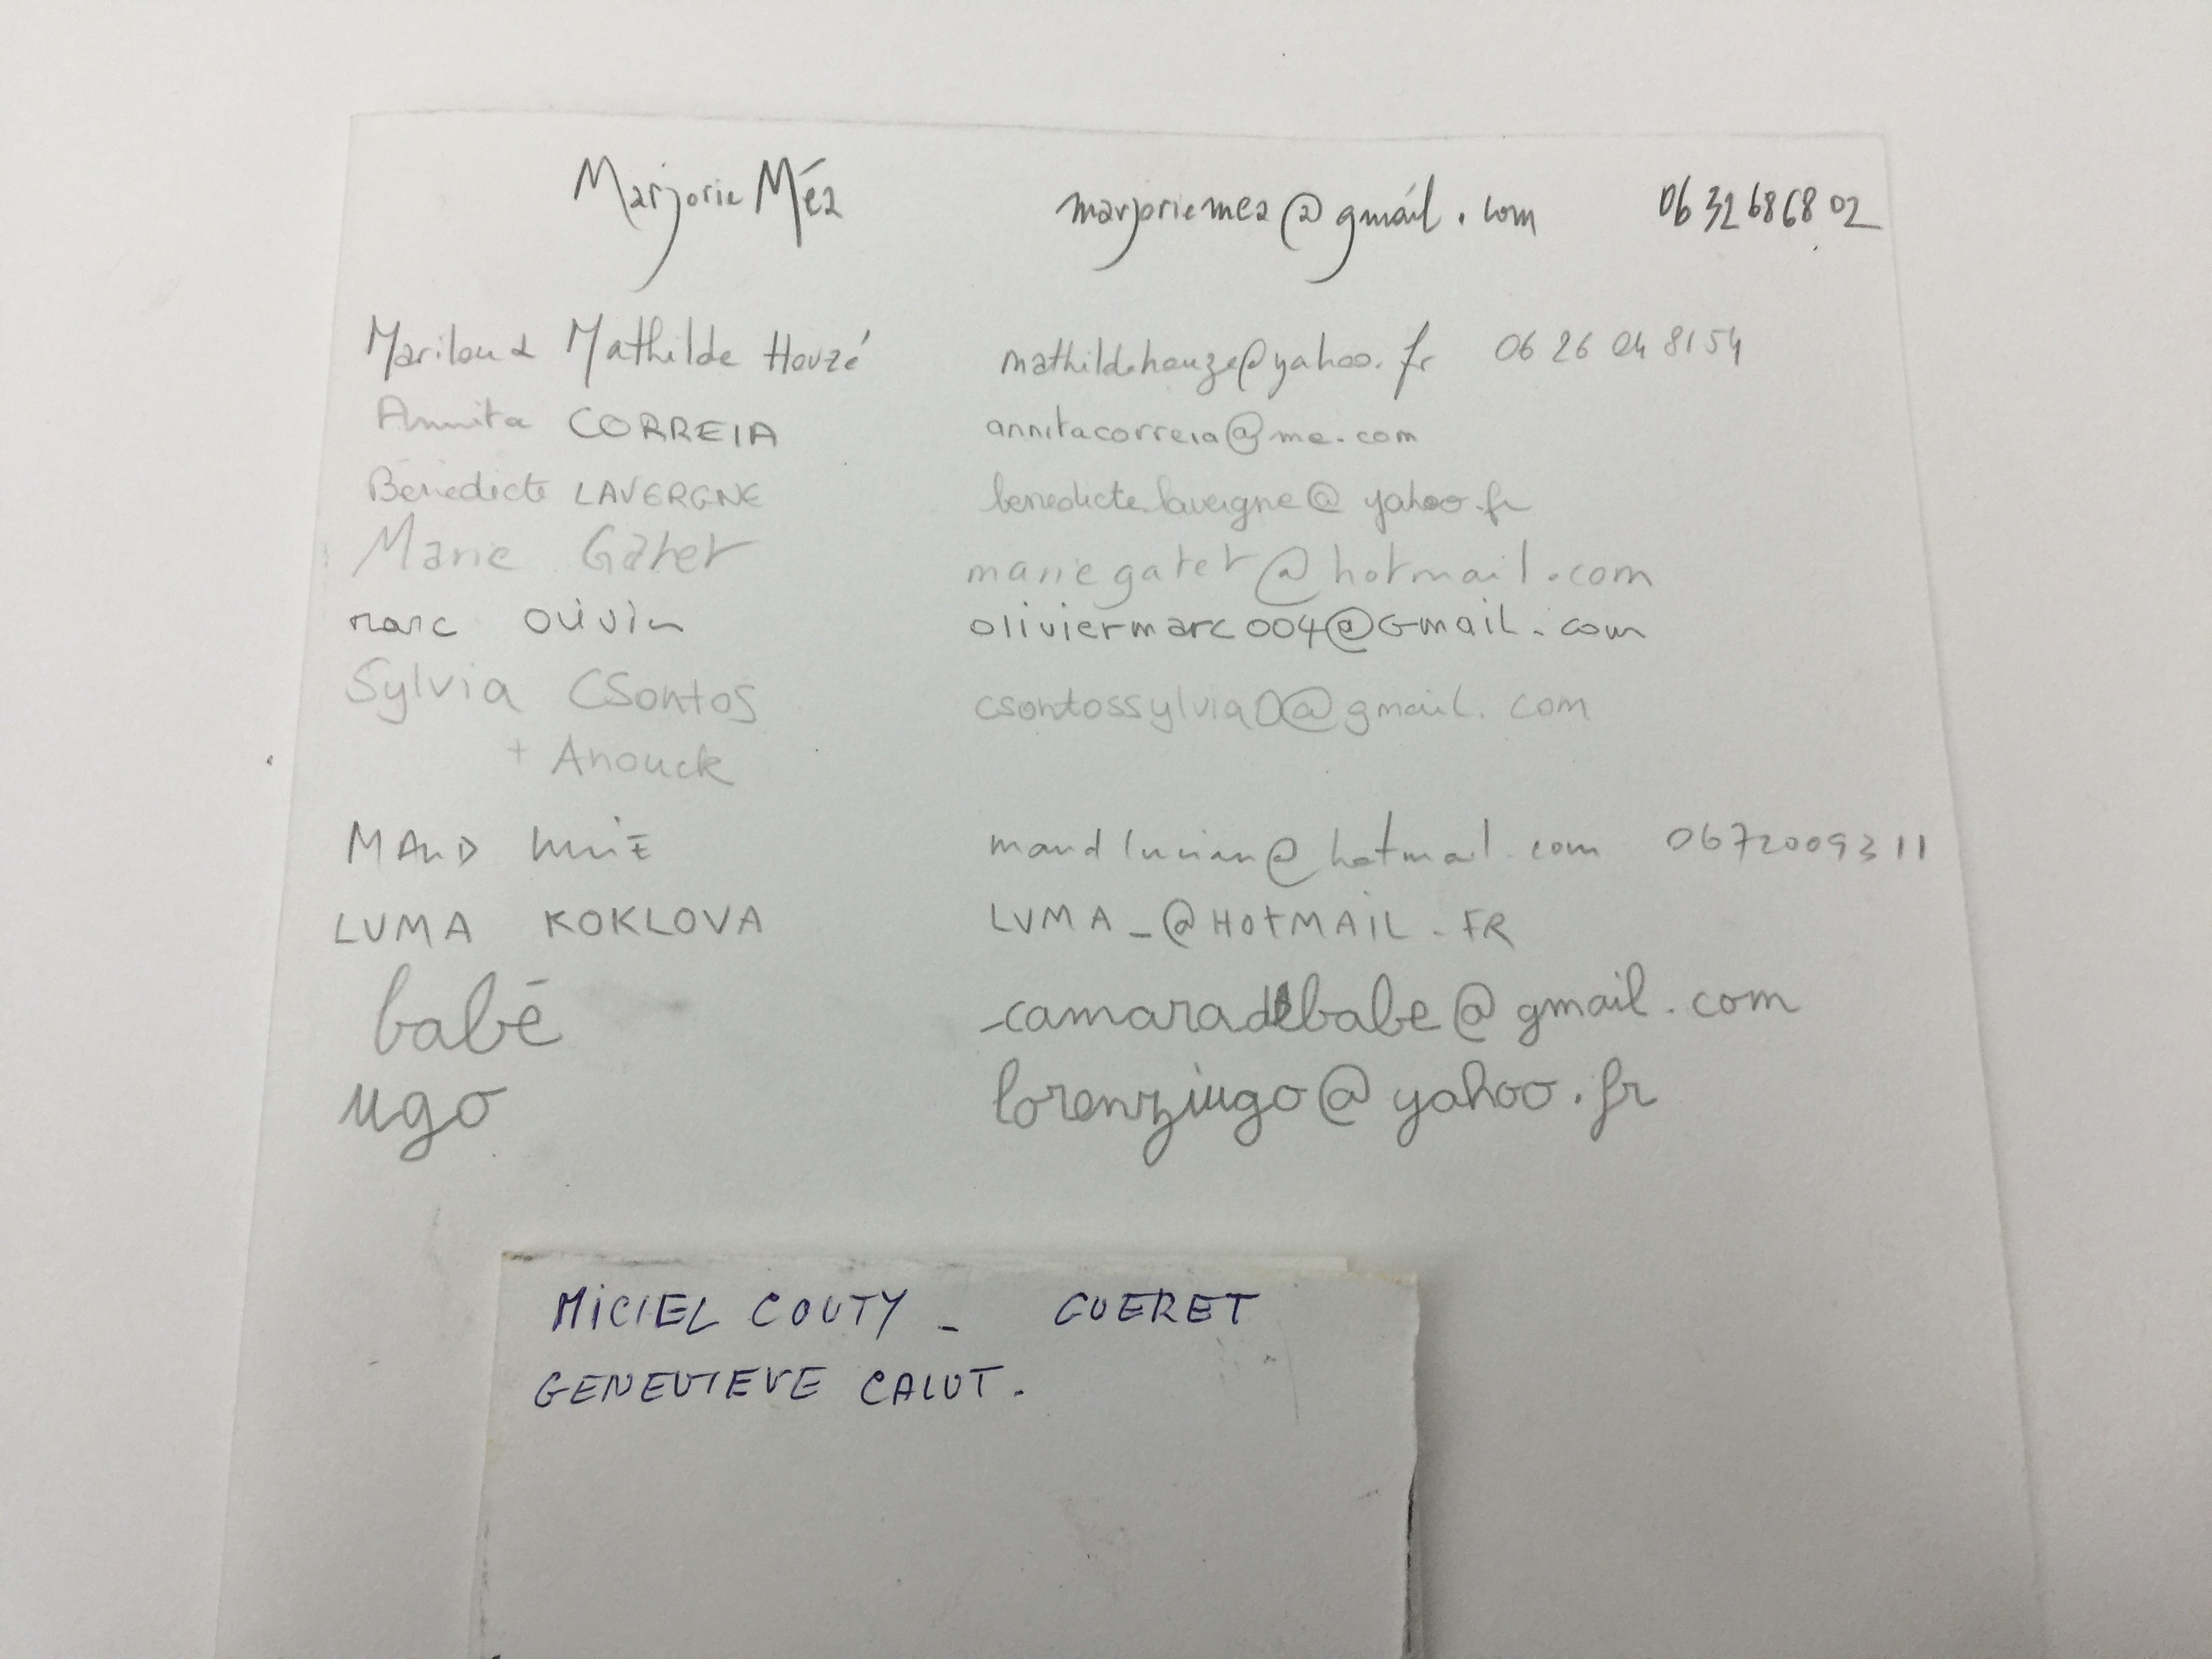 Marjorie Méa marjoriemea@gmail.com 0632686802
Marilou & Mathilde Houzé mathildehouze@yahoo.fr 06 26 04 81 54
Annita CORREIA annitacorreia@me.com
Bénédicte LAVERGNE benedicte.lavergne@yahoo.fr
Marie Gatet mariegatet@hotmail.com
marc olivier oliviermarc004@Gmail.com
Sylvia CSontos csontossylvia0@gmail.com
+ Anouck
MAUD 0672009311
LUMA KOKLOVA LUMA_@HOTMAIL.FR
babé camaradebabe@gmail.com
ugo lorenziugo@yahoo.fr
MICIEL COUTY - GUERET
GENEVIEVE CALUT.